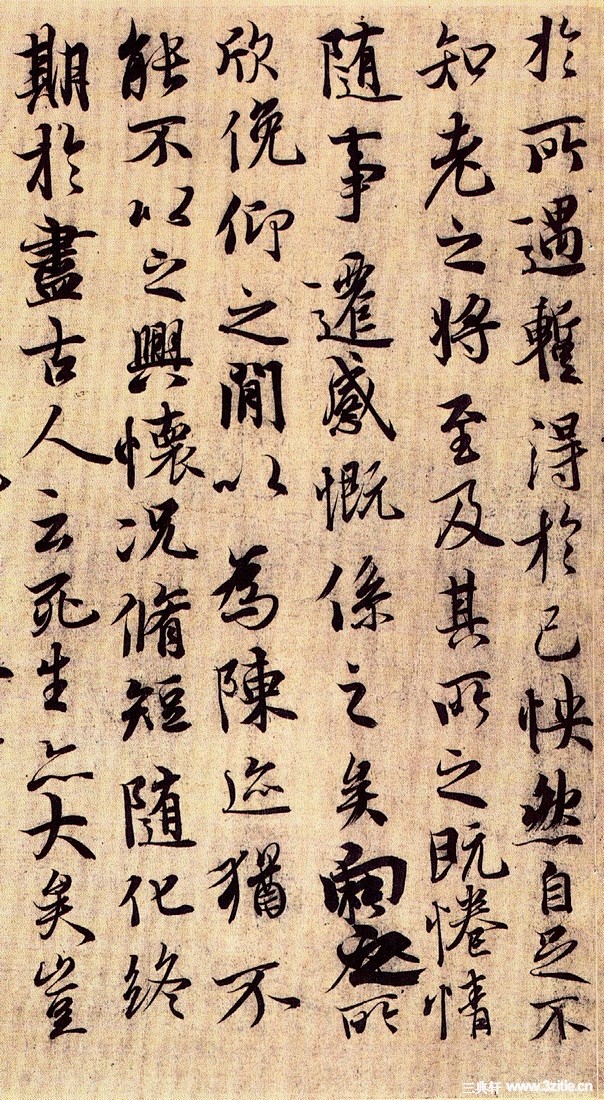 於所遇暫得於己怏然自足不
知老之將至及其所之既惓情
隨事遷感慨係之矣向之所
欣俛仰之閒以為陳迹猶不
能不以之興懷況脩短隨化終
期於盡古人云死生亦大矣豈
三典轩 www.3zitie.cn